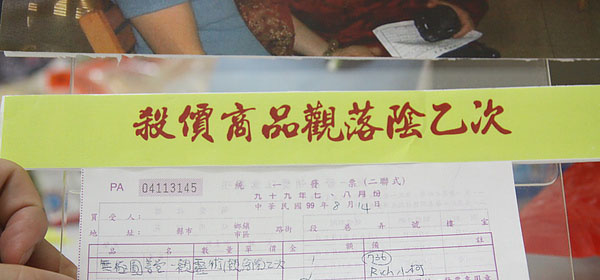 殺價商品觀落陰乙次
PA 04113145
統一發票(二聯式)
九十九年七、八月份
中華民國99年8月14日
買受人:
地址: 縣市 鄉鎮市區 路街 段 巷 弄 號 樓 室
品名 數量 單價 金額 備
觀落陰乙次 1
736
Rich